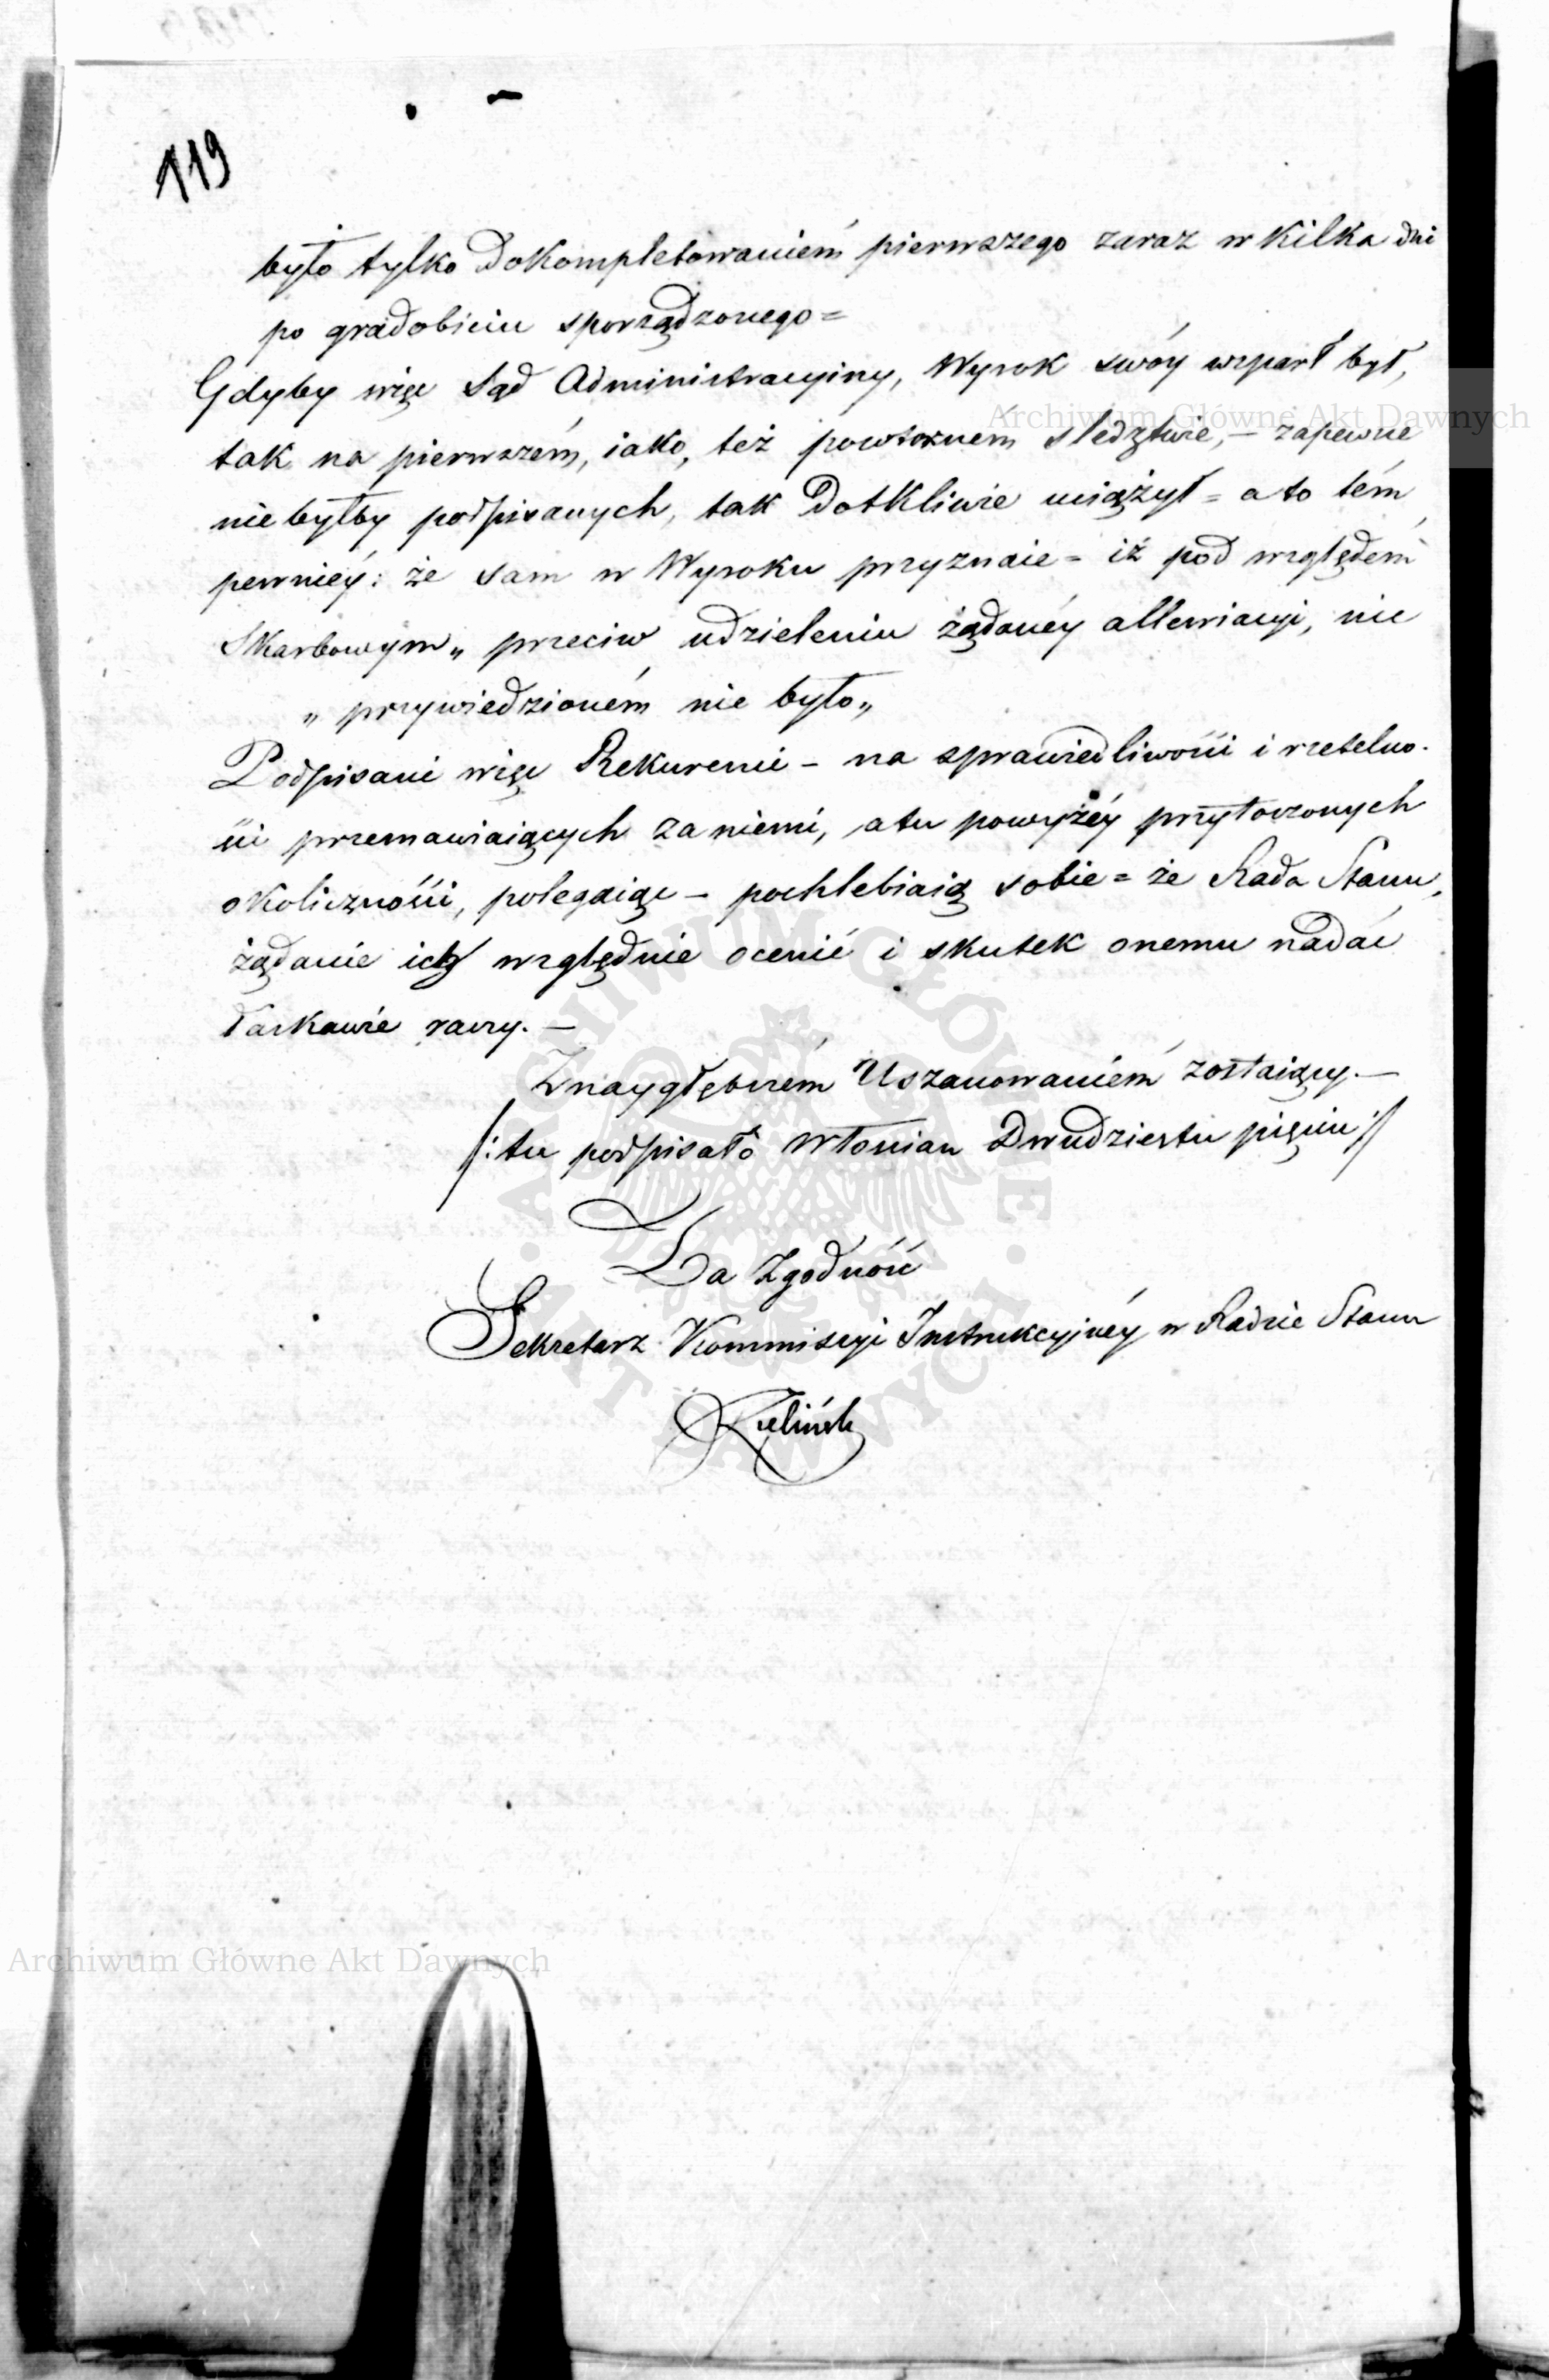 119
było tylko Dokompletowaniem pierwszego zaraz w kilka dni
po gradobiciu sporządzonego =
Gdyby więc Sąd Administracyiny, Wyrok swóy wsparł był,
tak na pierwszém, iako, też powtorném sledztwie, – zapewne
nie byłby podpisanych, tak Dotkliwie uciążył = a to tém
pewniéy: że sam w Wyroku przyznaie = iż pod względem
Skarbowym „ przeciw udzieleniu żądanéy allewiacyi, nic
„ przywiedzioném nie było „
Podpisani więc Rekurenci – na sprawiedliwości i rzetelno-
ści przemawiaiących za niemi, a tu powyżéy przytoczonych
okoliczności, polegaiąc – pochlebiaią sobie = że Rada Stanu,
żądanie ich względnie ocenić i skutek onemu nadać
łaskawie raczy. –
Z naygłębszém Uszanowaniem zostaiący. –
/: tu podpisało Włościan Dwudziestu pięciu :/
Za Zgodność
Sekretarz Kommissyi Instrukcyjnéy w Radzie Stanu
Archiwum Główne Akt Dawnych
Archiwum Główne Akt Dawnych
ARCHIWUM GŁÓWNE · AKT DAWNYCH ·